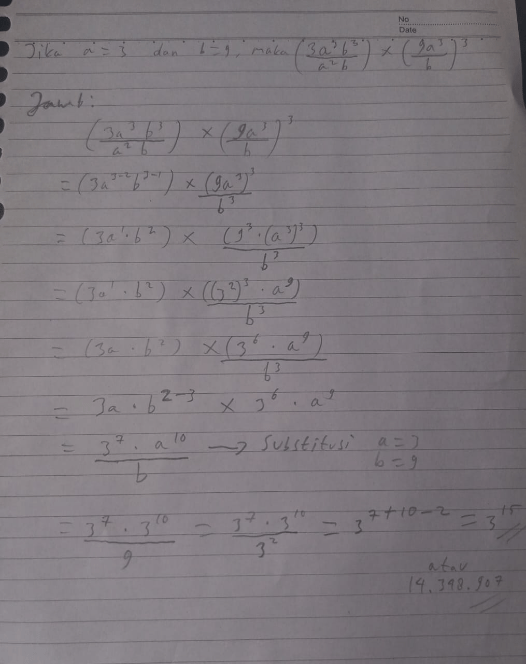 No
Date
Jika a = 3 dan b = 9, maka (3a³b³/a²b) × (9a³/b)³
Jawab:
(3a³b³/a²b) × (9a³/b)³
= (3a³⁻²b³⁻¹) × (9a³)³/b³
= (3a¹·b²) × (9³·(a³)³)/b³
= (3a¹·b²) × ((3²)³·a⁹)/b³
= (3a·b²) × (3⁶·a⁹)/b³
= 3a·b²⁻³ × 3⁶·a⁹
= 3⁷·a¹⁰/b → Substitusi a = 3
b = 9
= 3⁷·3¹⁰/9 = 3⁷·3¹⁰/3² = 3⁷⁺¹⁰⁻² = 3¹⁵
atau
14.398.907